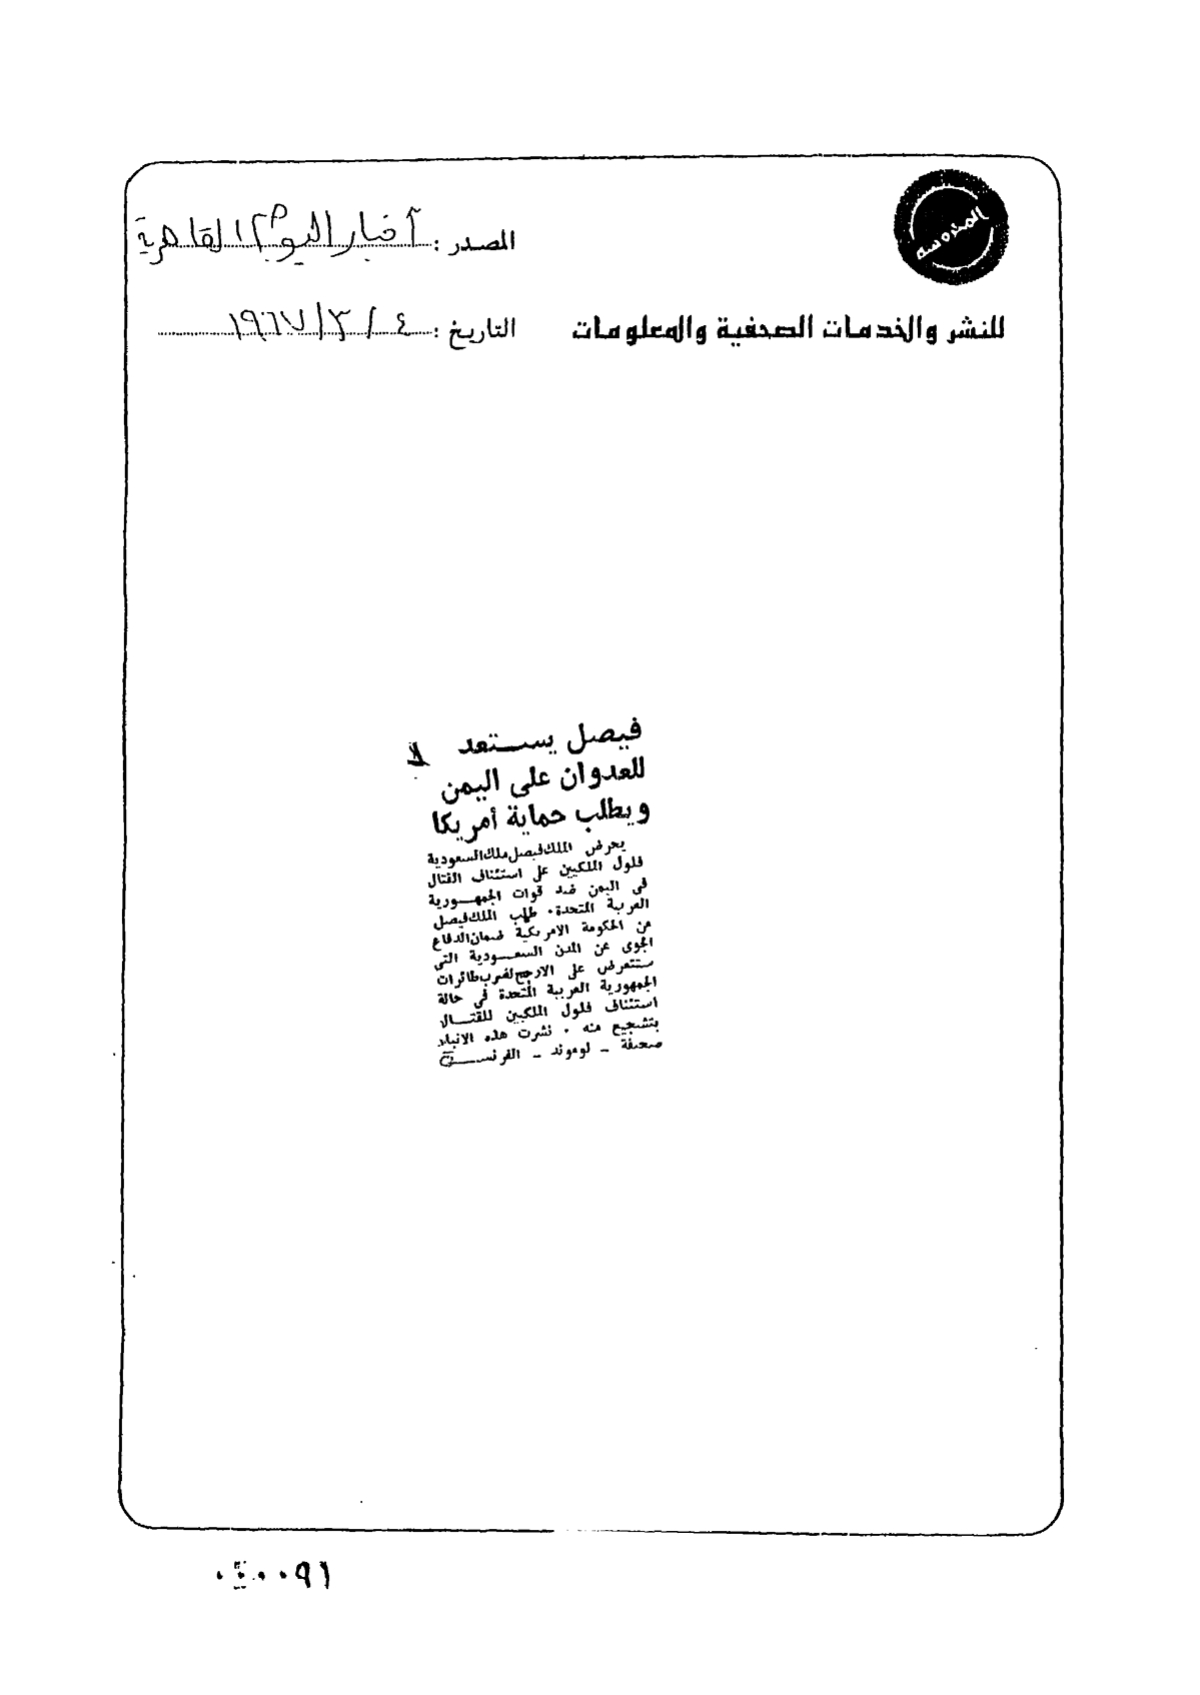 المصدر : أخبار اليوم القاهرية
للنشر والخدمات الصحفية والمعلومات
التاريخ : ٤ / ٣ / ١٩٦٧
فيصل يستعد
للعدوان على اليمن
ويطلب حماية أمريكا
يحرض الملك فيصل ملك السعودية
فلول الملكيين على استئناف القتال
فى اليمن ضد قوات الجمهورية
العربية المتحدة . طلب الملك فيصل
من الحكومة الامريكية ضمان الدفاع
الجوى عن المدن السعودية التى
ستتعرض على الارجح لضرب طائرات
الجمهورية العربية المتحدة فى حالة
استئناف فلول الملكيين للقتال
بتشجيع منه . نشرت هذه الانباء
صحيفة - لوموند - الفرنسية